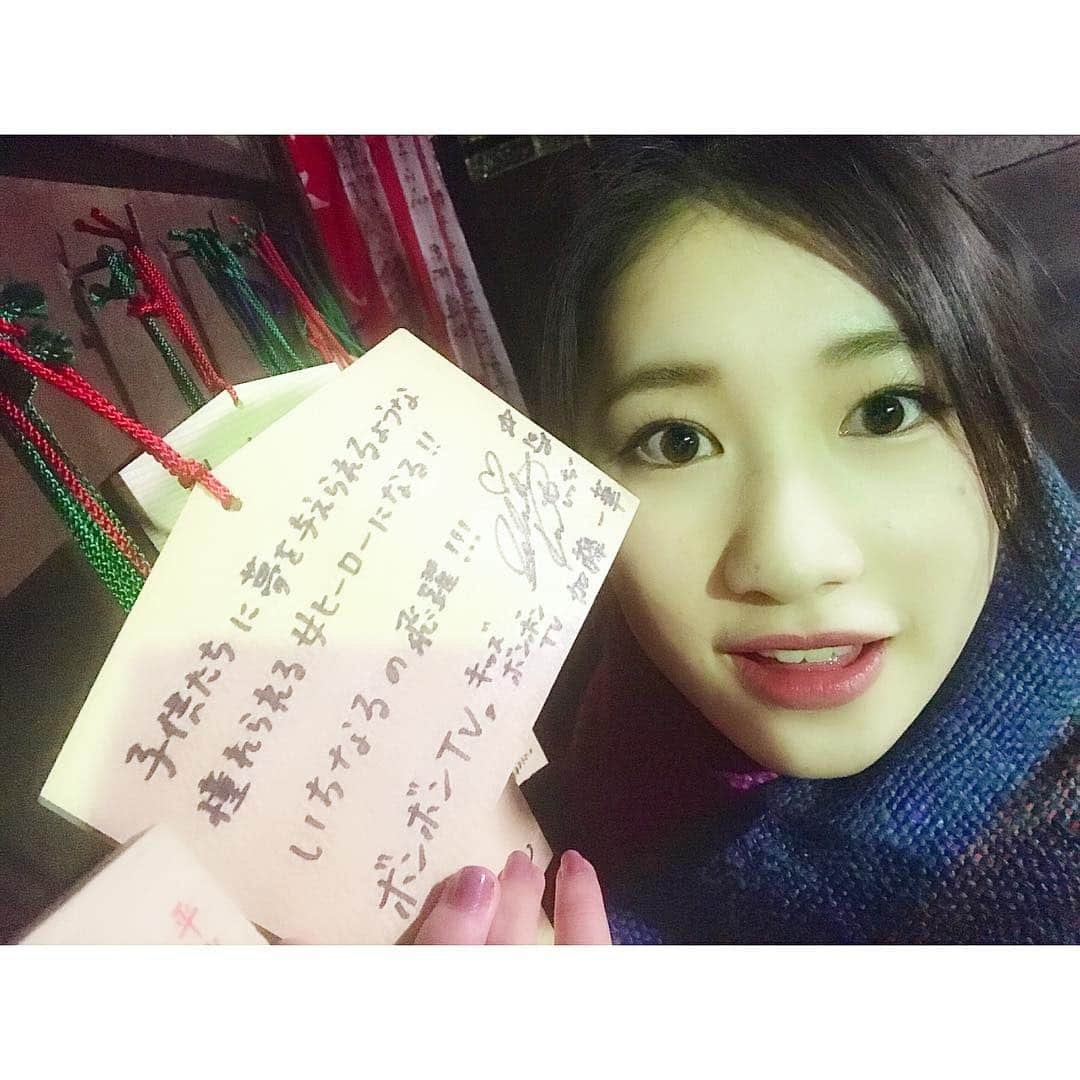 子供たちに夢を与えられるような
憧れられる女ヒーローになる!!
いちなるの飛躍!!!
ボンボンTV。キッズ
ボンボン
TV
加藤一華
平